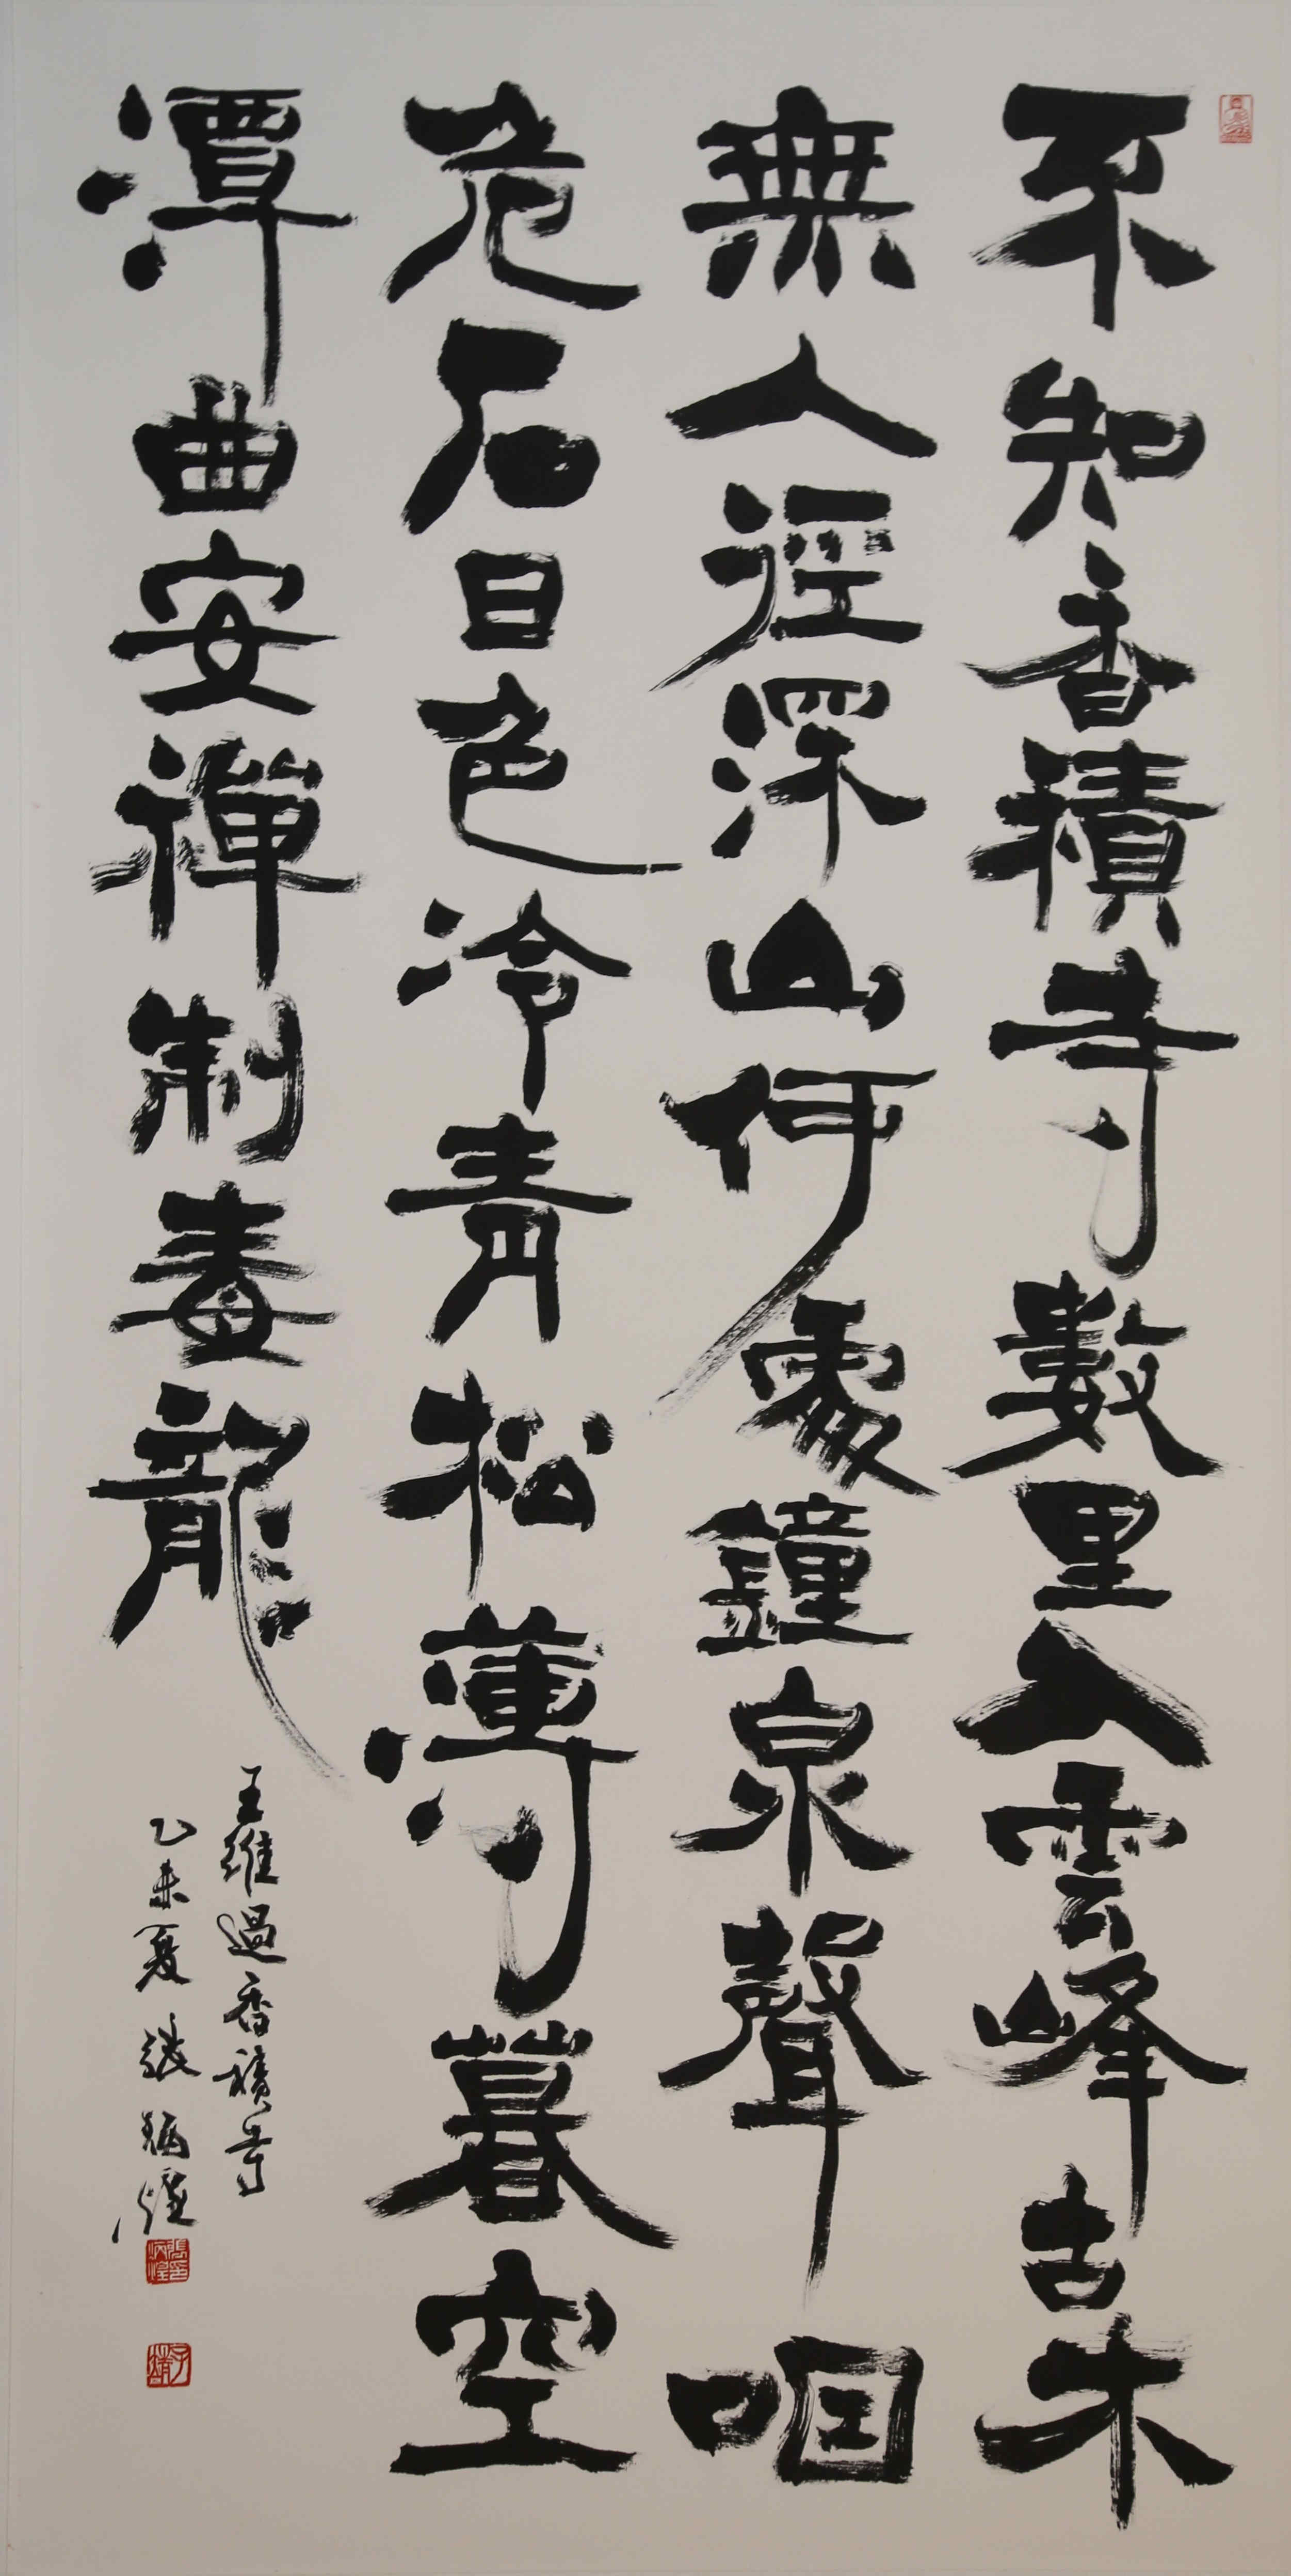 不知香積寺數里入雲峰古木
無人徑深山何處鐘泉聲咽
危石日色冷青松薄暮空
潭曲安禪制毒龍
王維過香積寺
乙未夏張炳煌